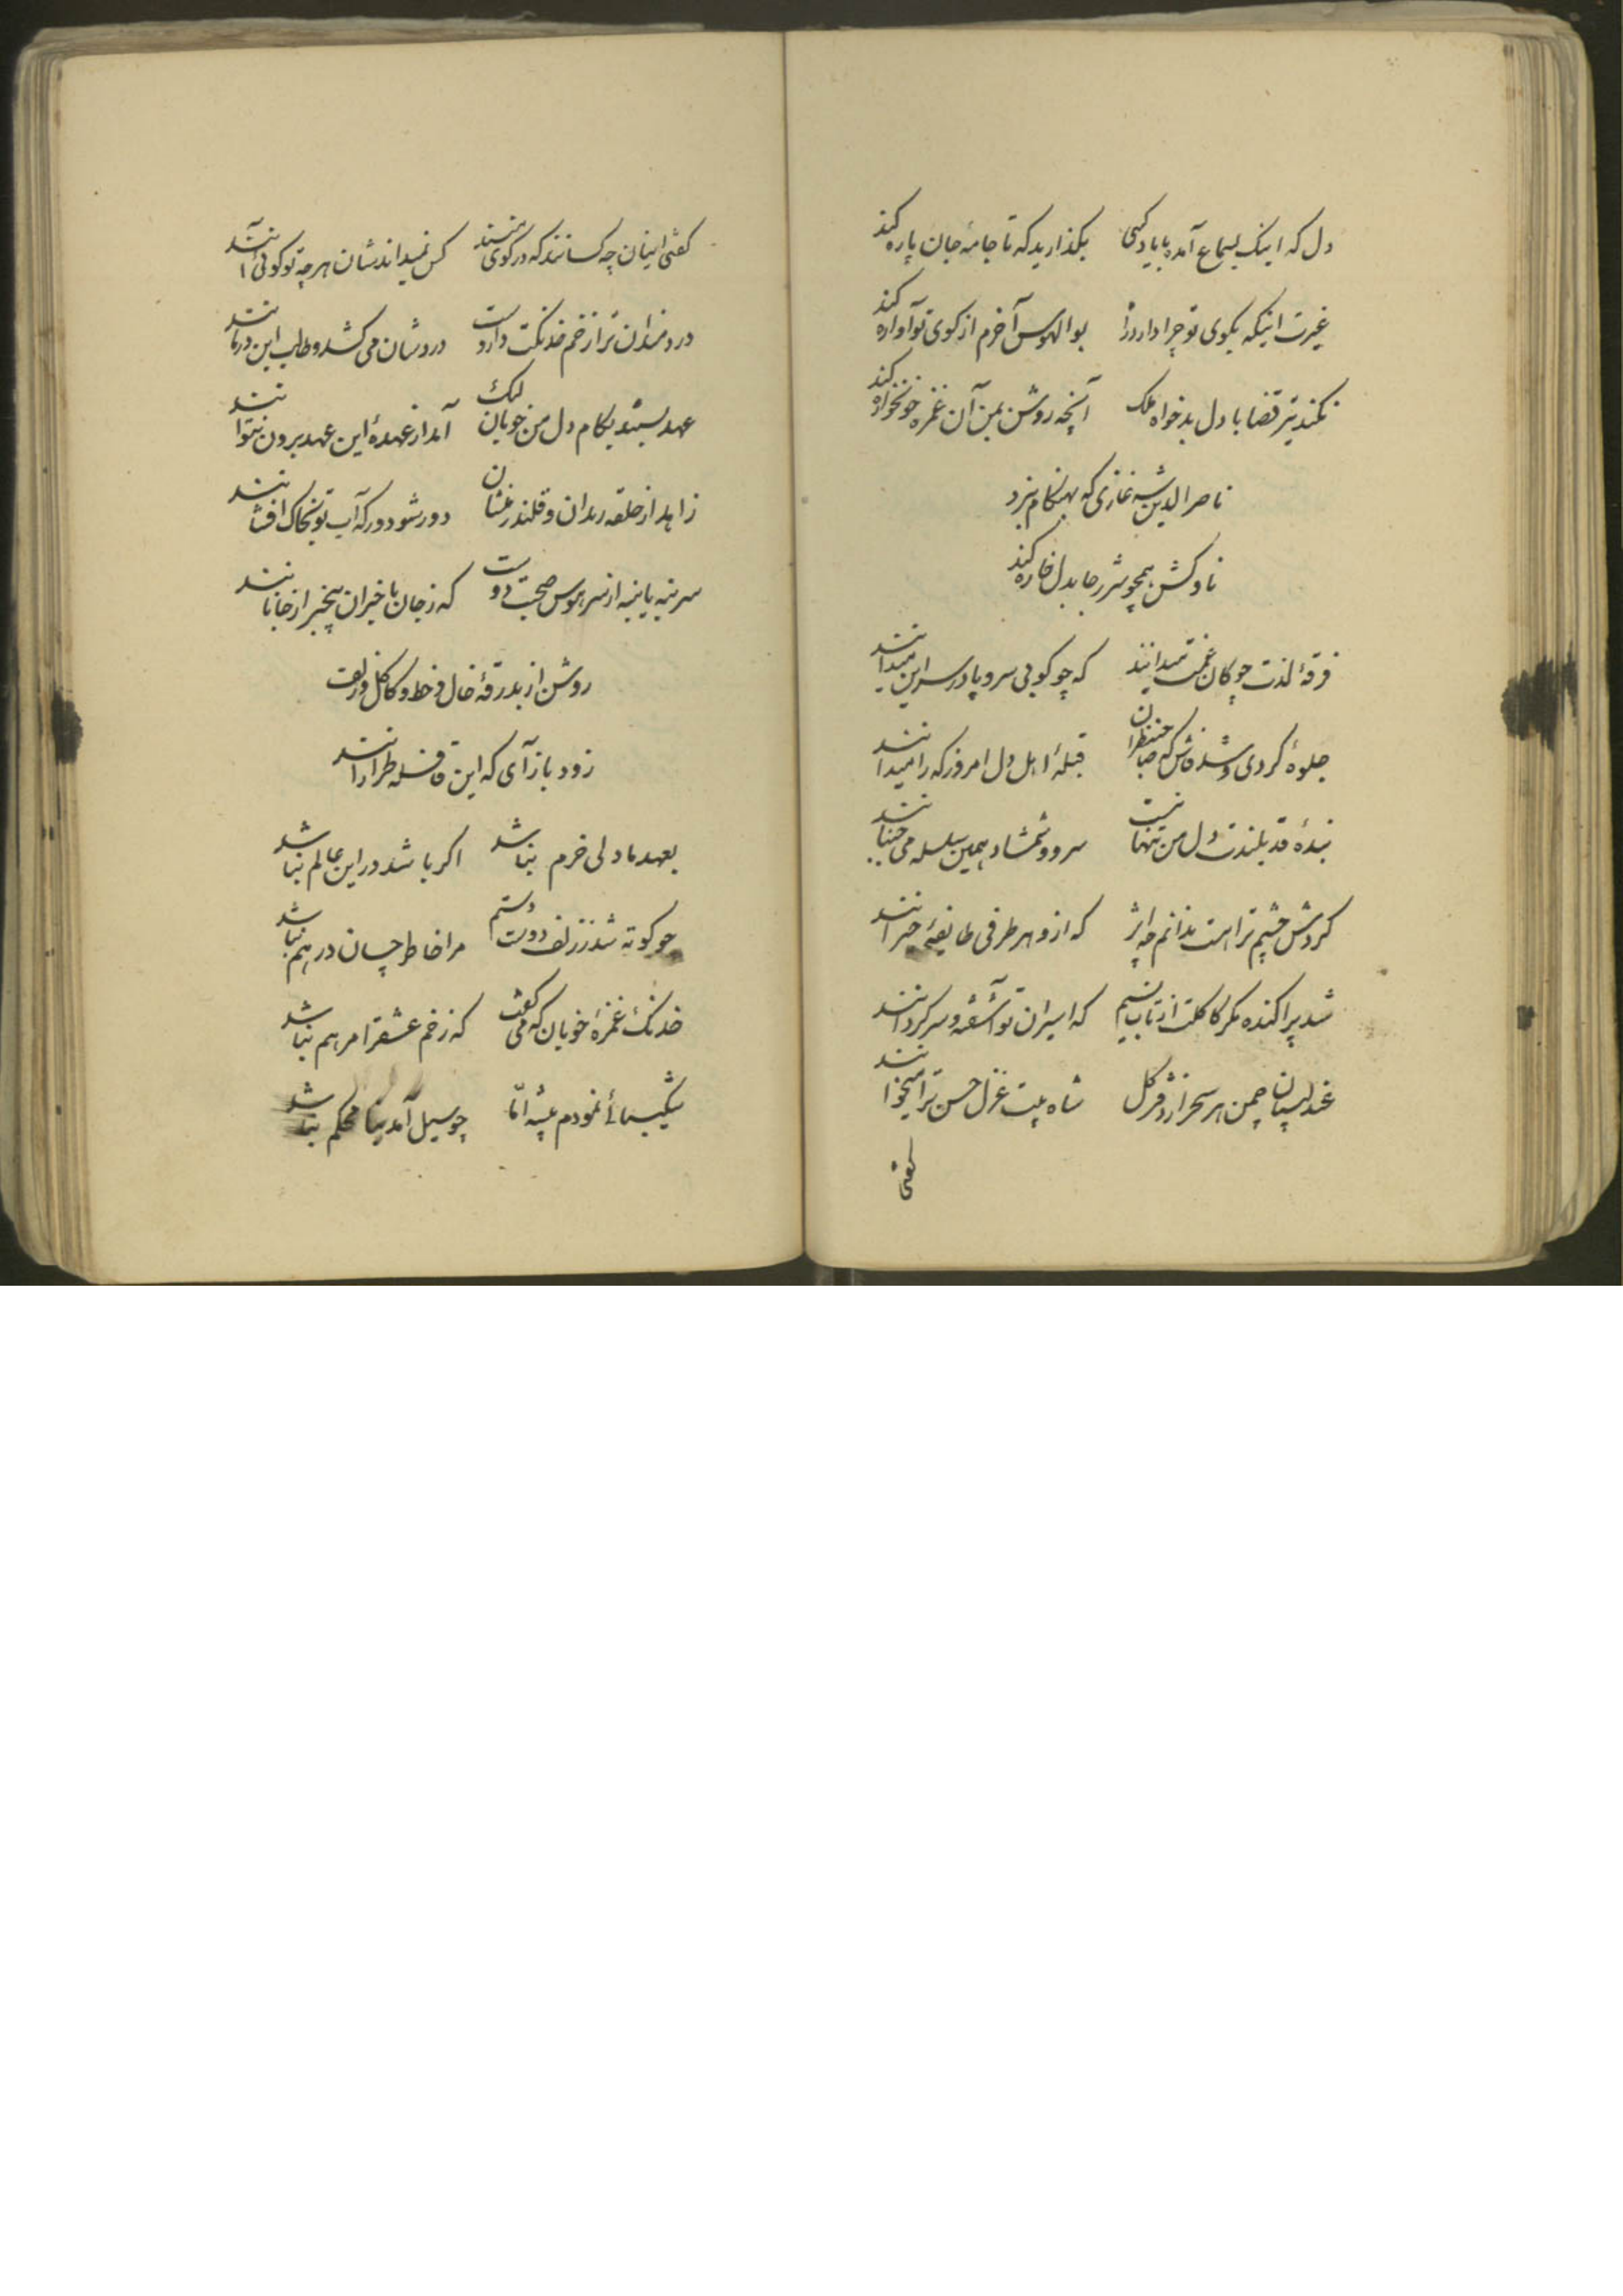 دل که اینک بسماع آمده با یاد کسی بگذارید که تا جامهٔ جان پاره کند
غیرت اینکه بکوی تو چرا دارد راز بوالهوس آخرم از کوی تو آواره کند
نکند تیر قضا با دل بدخواه ملک آنچه روشن بمن آن غمزه خونخواره کند
ناصرالدین شه غازی که بهنگام نبرد
ناوکش همچو شرر جا بدل خاره کند
فرقهٔ لذت چوکان غمت میدانند که چو کوی سر و پا در سر این میدانند
جلوهٔ کردی و شد فاش که صاحبنظران قبلهٔ اهل دل امروز که را میدانند
بندهٔ قد بلندت دل من تنها نیست سرو و شمشاد همین سلسله می جنبانند
کردش چشم ترا هست ندانم چه اثر که ازو هر طرفی طایفهٔ حیرانند
شد پراکنده مکر کاکلت از تاب نسیم که اسیران تو آشفته و سرکردانند
عندلیبان چمن هر سحر از دفتر کل شاه بیت غزل حسن ترا میخوانند
کفتی
کفتی اینان چه کسانند که در کوی منند کس نمیداندشان هر چه تو کوئی آنند
دردمندان ترا زخم خدنکت داروست دردشان می کشد و طالب این درمانند
عهد بستند بکام دل من خوبان لیک آمد از عهدهٔ این عهد برون نتوانند
زاهد از حلقه رندان و قلندر منشان دور شو دور که آب تو بخاک افشانند
سر بنه یا بنه از سر هوس صحبت دوست که ز جان با خبران بیخبر از جانانند
روشن از بدرقهٔ خال و خط و کاکل و زلف
زود باز آی که این قافله طرارانند
بعهد ما دلی خرم نباشد اکر باشد در این عالم نباشد
چو کوته شد ز زلف دوست دستم مرا خاطر چسان در هم نباشد
خدنک غمزهٔ خوبان که می کفت که زخم عشق را مرهم نباشد
شکیبائی نمودم پیشه امّا چو سیل آمد بنا محکم نباشد